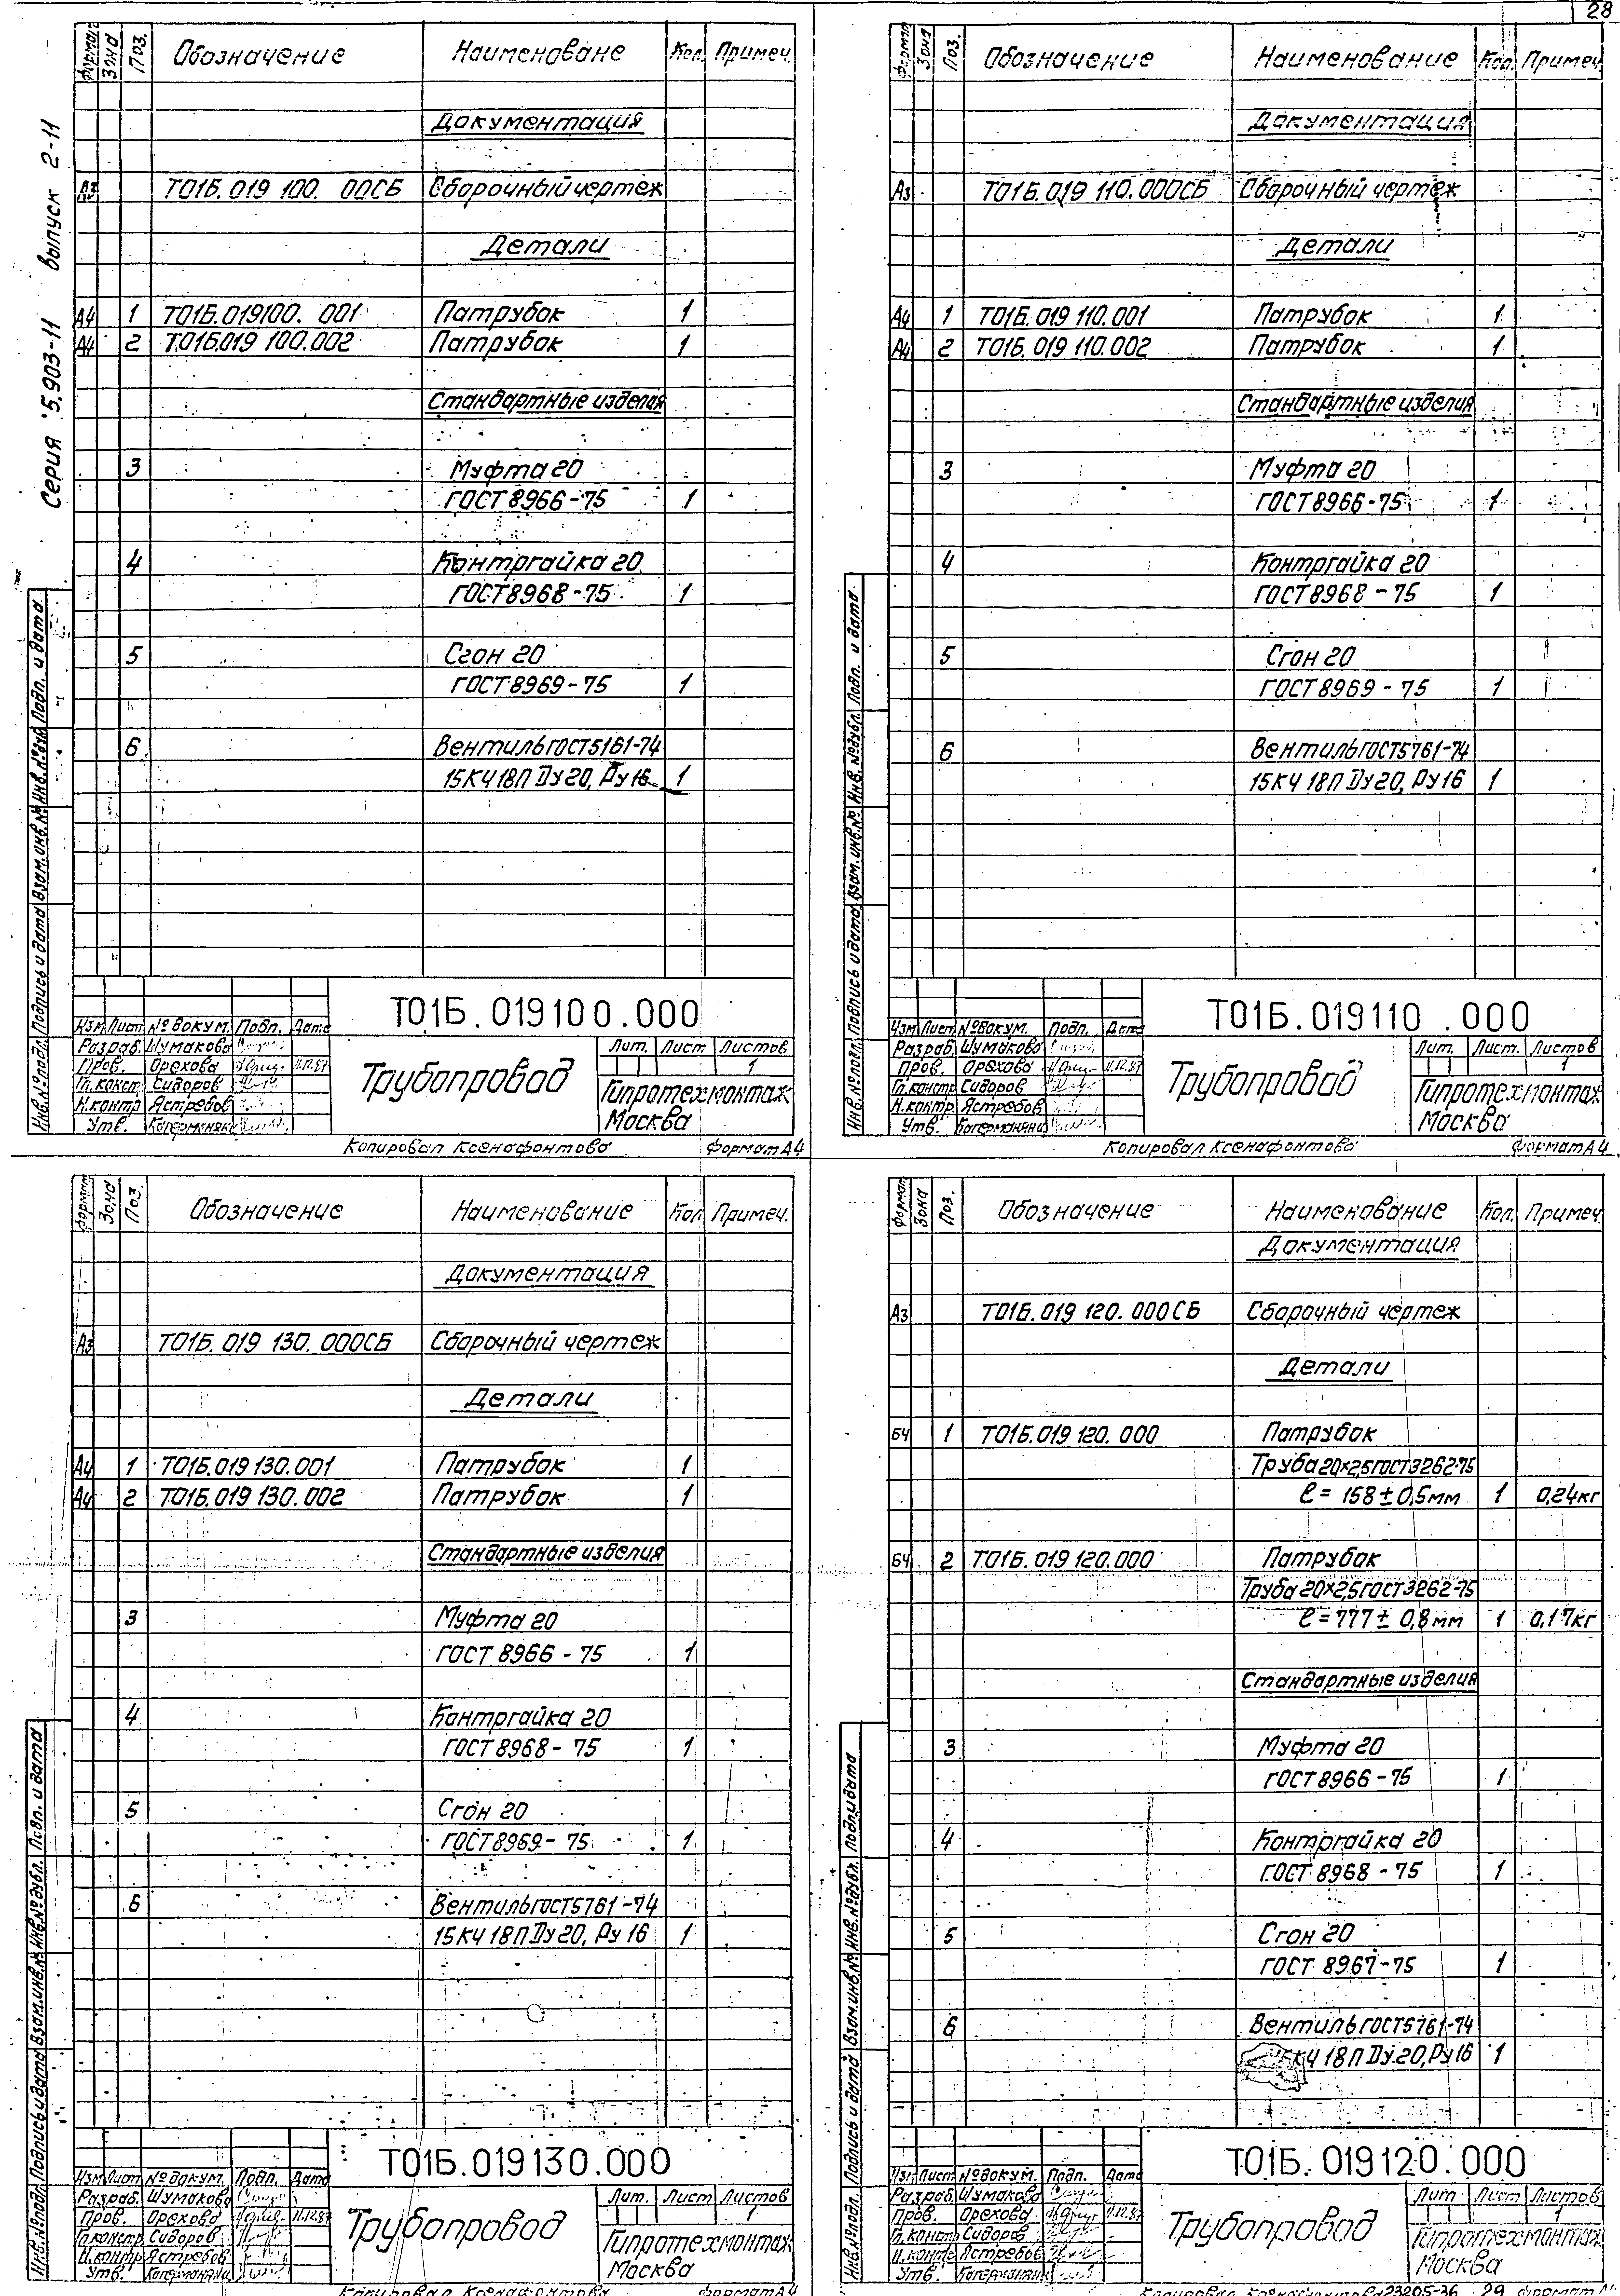 28
Серия 5.903-11 выпуск 2-11
Формат Зона Поз. Обозначение Наименоване Кол. Примеч.
Документация
Т01Б.019 100. 00СБ Сборочный чертеж
Детали
А4 1 Т01Б.019100. 001 Патрубок 1
А4 2 Т01Б.019 100.002 Патрубок 1
Стандартные изделия
3 Муфта 20
ГОСТ 8966-75 1
4 Контргайка 20
ГОСТ 8968-75 1
5 Сгон 20
ГОСТ 8969-75 1
6 Вентиль ГОСТ 5161-74
15КЧ 18П Ду 20, Ру 16 1
Инв.№ подл. Подпись и дата Взам.инв.№ Инв.№ дубл. Подп. и дата
Т01Б.019100.000
Изм Лист № докум. Подп. Дата
Разраб. Шумакова
Пров. Орехова 11.12.87
Гл.констр Сидоров
Н.контр Ястребов
Утв.
Трубопровод
Лит. Лист Листов
1
Гипротехмонтаж
Москва
Копировал Ксенафонтова Формат А4
Формат Зона Поз. Обозначение Наименование Кол. Примеч.
Документация
А3 Т01Б.019 110.000СБ Сборочный чертеж
Детали
А4 1 Т01Б.019 110.001 Патрубок 1
А4 2 Т01Б.019 110.002 Патрубок 1
Стандартные изделия
3 Муфта 20
ГОСТ 8966-75 1
4 Контргайка 20
ГОСТ 8968-75 1
5 Сгон 20
ГОСТ 8969-75 1
6 Вентиль ГОСТ 5761-74
15КЧ 18П Ду 20, Ру 16 1
Инв.№ подл. Подпись и дата Взам.инв.№ Инв.№ дубл. Подп. и дата
Т01Б.019110.000
Изм Лист № докум. Подп. Дата
Разраб. Шумакова
Пров. Орехова 11.12.87
Гл.констр Сидоров
Н.контр Ястребов
Утв.
Трубопровод
Лит. Лист. Листов
1
Гипротехмонтаж
Москва
Копировал Ксенафонтова Формат А4
Формат Зона Поз. Обозначение Наименование Кол Примеч.
Документация
А3 Т01Б.019 130. 000СБ Сборочный чертеж
Детали
А4 1 Т01Б.019 130.001 Патрубок 1
А4 2 Т01Б.019 130.002 Патрубок 1
Стандартные изделия
3 Муфта 20
ГОСТ 8966-75 1
4 Контргайка 20
ГОСТ 8968-75 1
5 Сгон 20
ГОСТ 8969-75 1
6 Вентиль ГОСТ 5761-74
15КЧ 18П Ду 20, Ру 16 1
Инв.№ подл. Подпись и дата Взам.инв.№ Инв.№ дубл. Подп. и дата
Т01Б.019130.000
Изм Лист № докум. Подп. Дата
Разраб. Шумакова
Пров. Орехова 11.12.87
Гл.констр Сидоров
Н.контр Ястребов
Утв.
Трубопровод
Лит. Лист Листов
1
Гипротехмонтаж
Москва
Копировал Ксенафонтова Формат А4
Формат Зона Поз. Обозначение Наименование Кол. Примеч.
Документация
А3 Т01Б.019 120. 000СБ Сборочный чертеж
Детали
БЧ 1 Т01Б.019 120. 000 Патрубок
Труба 20×2,5 ГОСТ 3262-75
ℓ = 158 ± 0,5 мм 1 0,24кг
БЧ 2 Т01Б.019 120.000 Патрубок
Труба 20×2,5 ГОСТ 3262-75
ℓ = 777 ± 0,8 мм 1 0,17кг
Стандартные изделия
3 Муфта 20
ГОСТ 8966-75 1
4 Контргайка 20
ГОСТ 8968-75 1
5 Сгон 20
ГОСТ 8967-75 1
6 Вентиль ГОСТ 5761-74
КЧ 18П Ду 20, Ру 16 1
Инв.№ подл. Подпись и дата Взам.инв.№ Инв.№ дубл. Подп. и дата
Т01Б.019120.000
Изм Лист № докум. Подп. Дата
Разраб. Шумакова
Пров. Орехова 11.12.87
Гл.констр Сидоров
Н.контр Ястребов
Утв.
Трубопровод
Лит Лист Листов
1
Гипротехмонтаж
Москва
Копировал 23205-36 29 Формат